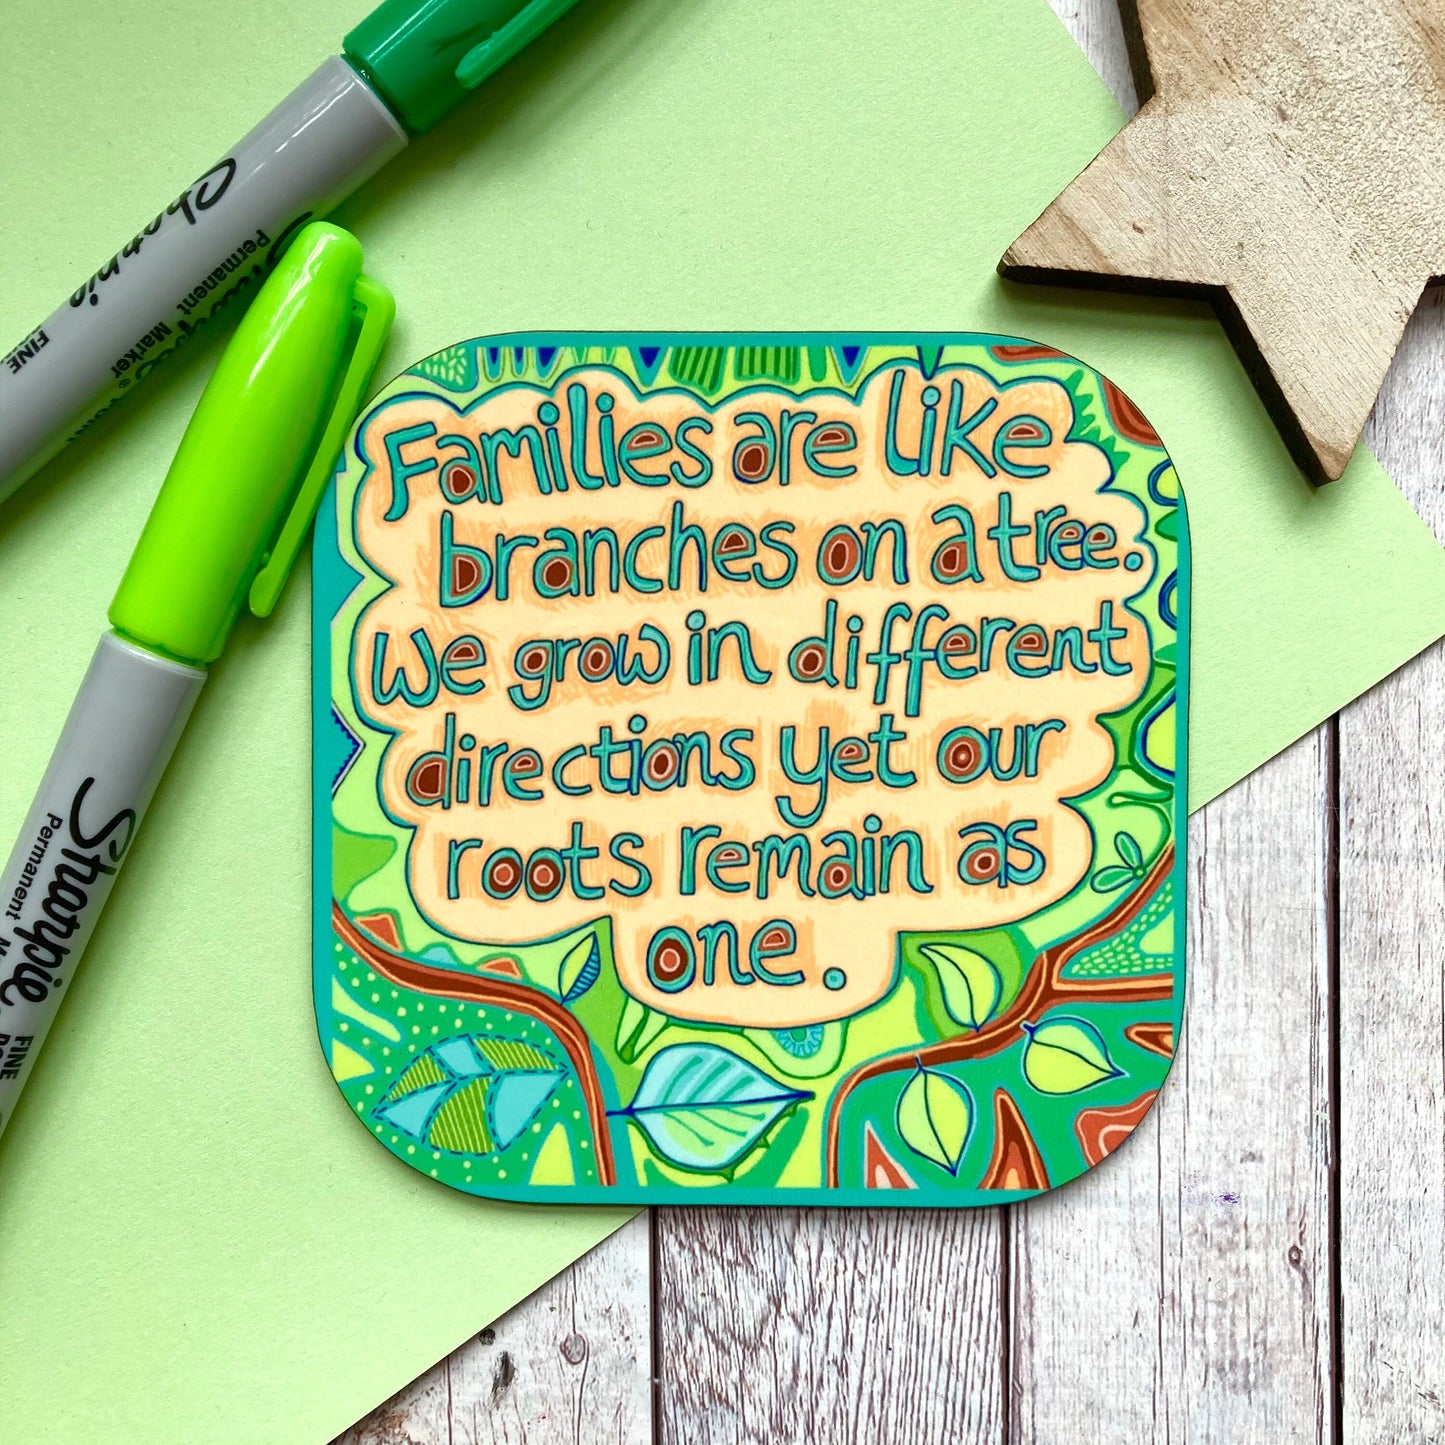 Families are like
branches on a tree.
We grow in different
directions yet our
roots remain as
one.
Sharpie
FINE
Permanent Marker
Sharpie
Permanent
FINE